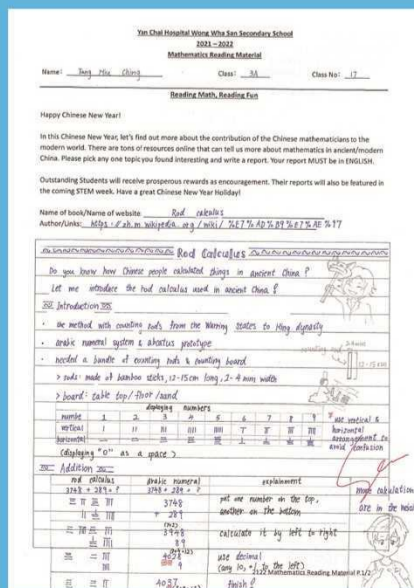 Yan Chai Hospital Wong Wha San Secondary School
2021 – 2022
Mathematics Reading Material
Name: Tang Hiu Ching Class: 3A Class No: 17
Reading Math, Reading Fun
Happy Chinese New Year!
In this Chinese New Year, let's find out more about the contribution of the Chinese mathematicians to the
modern world. There are tons of resources online that can tell us more about mathematics in ancient/modern
China. Please pick any one topic you found interesting and write a report. Your report MUST be in ENGLISH.
Outstanding Students will receive prosperous rewards as encouragement. Their reports will also be featured in
the coming STEM week. Have a great Chinese New Year Holiday!
Name of book/Name of website Rod calculus
Author/Links: https://zh.m.wikipedia.org/wiki/%E7%AD%B9%E7%AE%97
Rod Calculus
Do you know how Chinese people calculated things in ancient China?
Let me introduce the rod calculus used in ancient China!
Introduction
the method with counting rods from the Warring states to Ming dynasty
arabic numeral system & abactus prototype
needed a bundle of counting rods & counting board
> rods: made of bamboo sticks, 12-15cm long, 2-4 mm width
12-15cm
> board: table top/floor/sand
displaying numbers
numbe 1 2 3 4 5 6 7 8 9
vertical
horizontal
* use vertical &
horizontal
arrangement to
avoid confusion
(displaying "0" as a space)
Addition
rod calculus arabic numeral explainment
3748 + 289 = ? 3748 + 289 = ?
3748 put one number on the top,
289 another on the bottom
3948 calculate it by left to right
89
4028 use decimal
9 (any 10, +1 to the left)
4037 finish!
more calculation
are in the next
2122 Mathematics Reading Material P.1/2